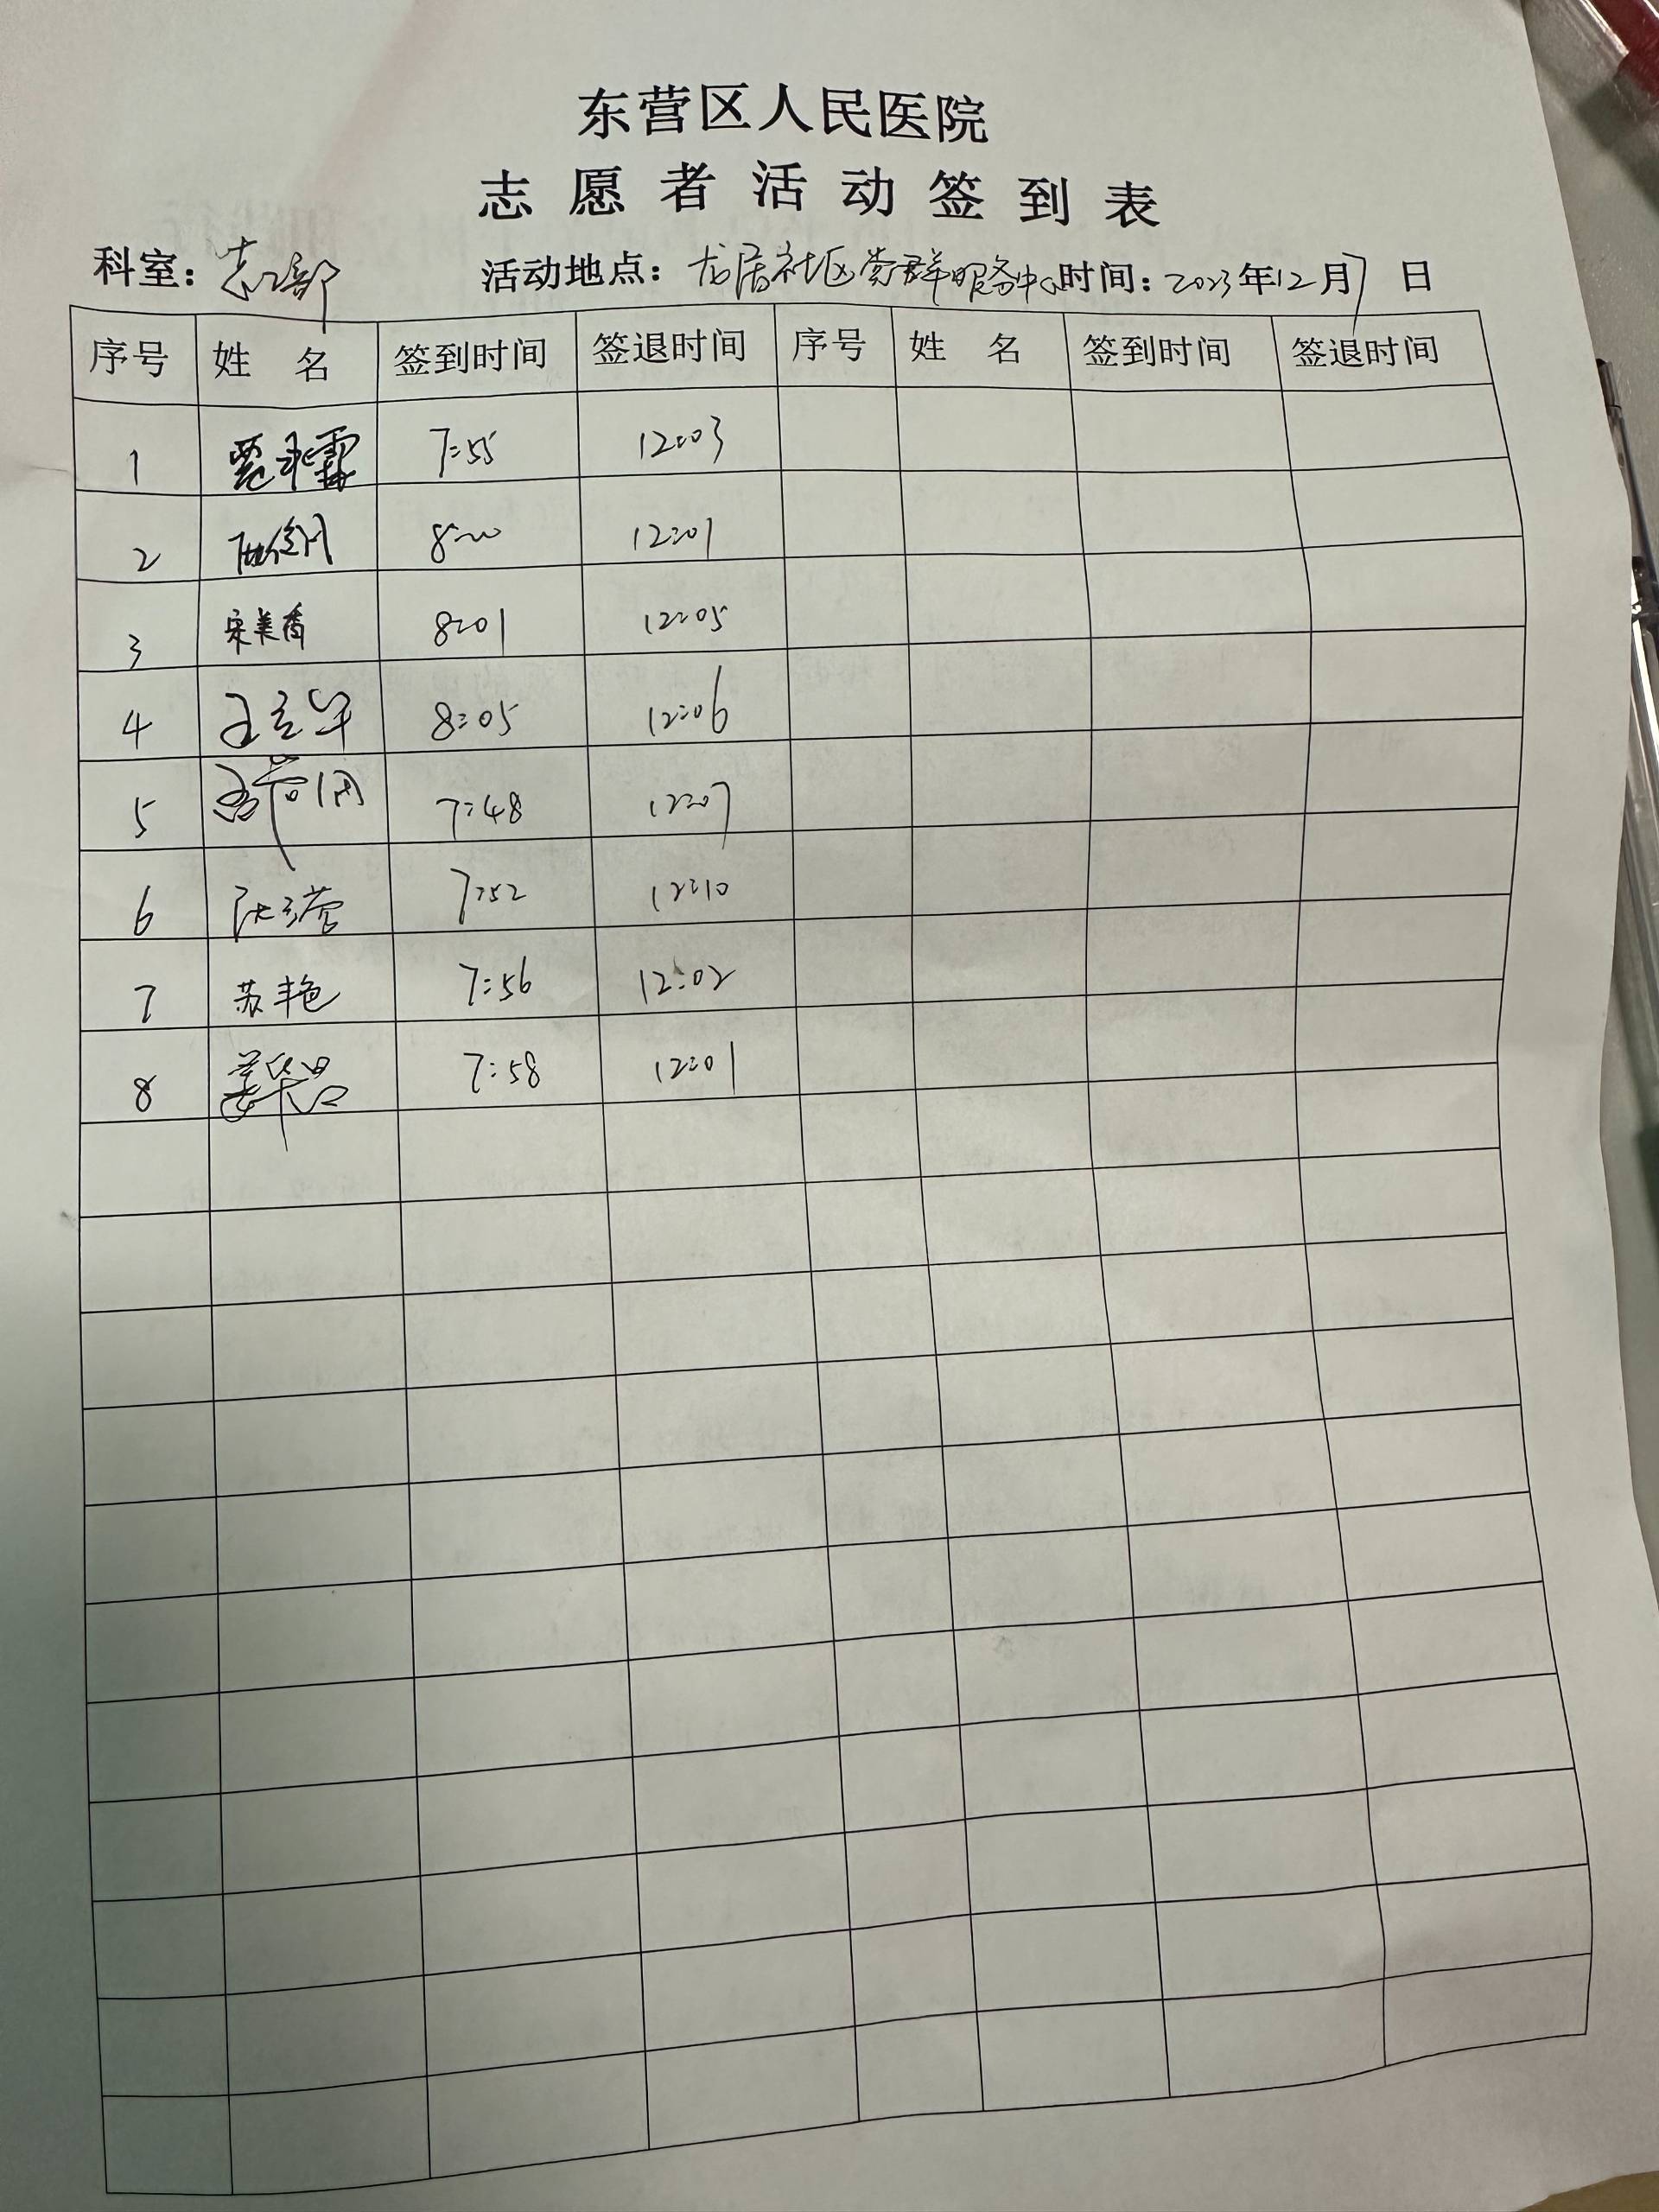 东营区人民医院
志愿者活动签到表
科室： 活动地点：龙居社区党群服务中心 时间：2023年12月7日
序号 姓名 签到时间 签退时间 序号 姓名 签到时间 签退时间
1 7:55 12:03
2 8:00 12:01
3 宋美香 8:01 12:05
4 8:05 12:06
5 7:48 12:07
6 7:52 12:10
7 苏艳 7:56 12:02
8 7:58 12:01